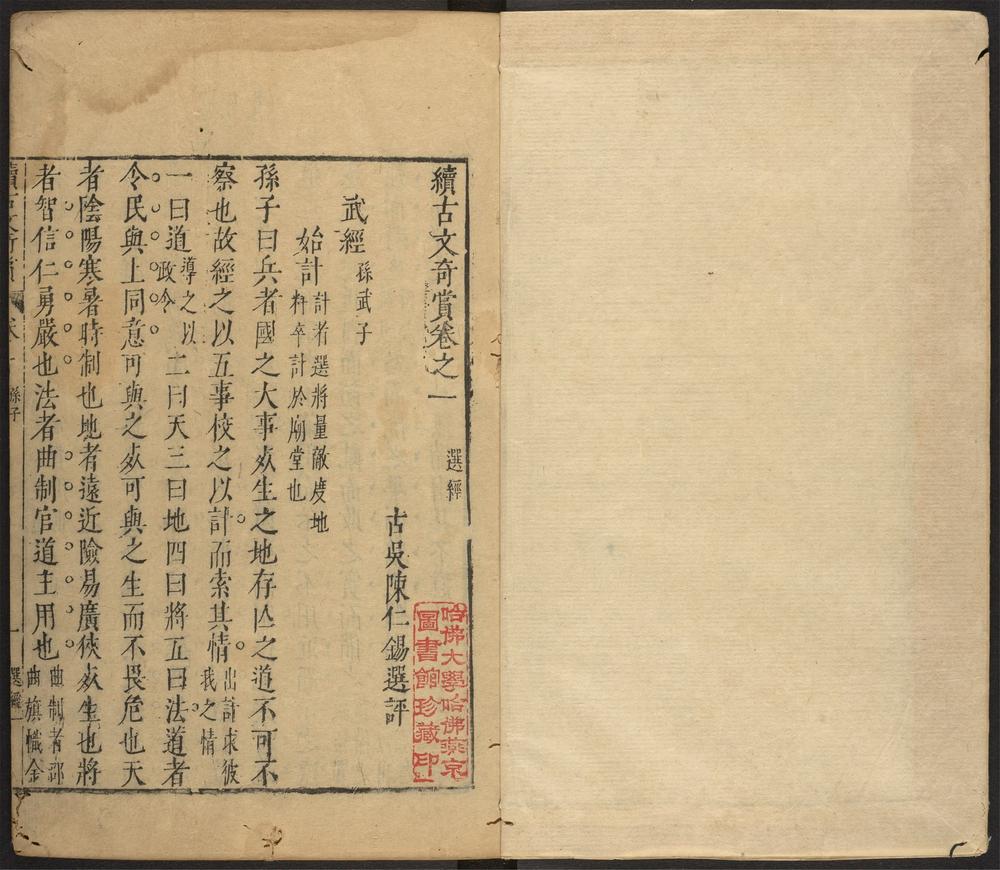 續古文奇賞卷之一
選經
古吳陳仁錫選評
哈佛大學哈佛燕京
圖書館珍藏印
武經 孫武子
始計 計者選將量敵度地
料卒計於廟堂也
孫子曰兵者國之大事死生之地存亾之道不可不
察也故經之以五事校之以計而索其情 出計求彼
我之情
一曰道 導之以
政令 二曰天三曰地四曰將五曰法道者
令民與上同意可與之死可與之生而不畏危也天
者陰陽寒暑時制也地者遠近險易廣狹死生也將
者智信仁勇嚴也法者曲制官道主用也 曲制者部
曲旗幟金
孫子
一
選經